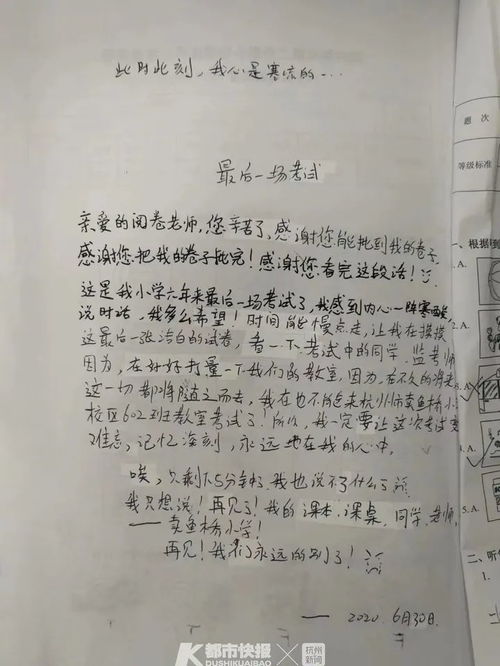 此时此刻，我心是寒凉的…
最后一场考试
亲爱的阅卷老师，您辛苦了，感谢您能批到我的卷子
感谢您把我的卷子批完！感谢您看完这段话！
这是我小学六年来最后一场考试了，我感到内心一阵寒
说时话，我多么希望！时间能慢点走，让我在摸摸
这最后一张洁白的试卷，看一下考试中的同学，监考师
因为，在好好打量一下我们的教室，因为，在不久的将来
这一切都将随之而去，我在也不能来杭州市卖鱼桥小
校区602班教室考试了！所以，我一定要让这次考试变
难忘，记忆深刻，永远地在我的心中。
唉，只剩下5分钟了，我也说不了什么了
我只想说！再见了！我的课本，课桌，同学，老师，
——卖鱼桥小学！
再见！我们永远的别了！
——2020，6月30日.
题 次
等级标准
一、根据
A.
2.
A.
3.
A.
4.
A.
5.A.
二、听
都市快报
DUSHIKUAIBAO
杭州
新闻